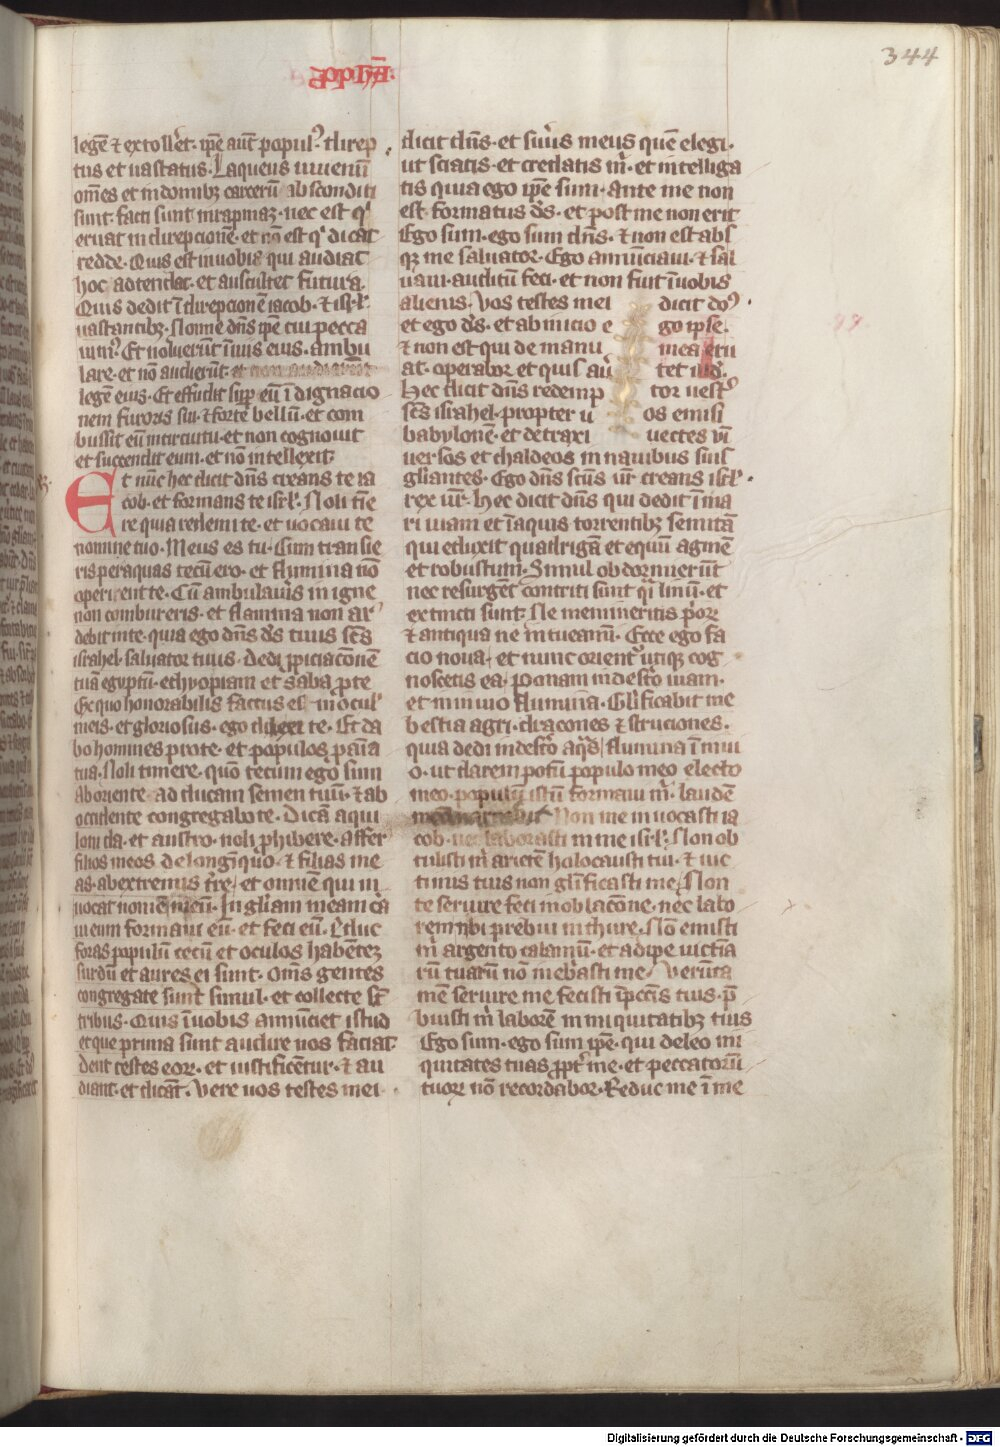 344
legē ⁊ extollet. ip̄e aūt popul᷒. direp
tus et uastatus. Laqueus iuuenū
om̄es et in domibꝫ carcerū absconditi
sunt. facti sunt in rapinaꝫ. nec est q'
eruat in direpcionē. et nō est q' dicat
redde. Quis est in uobis qui audiat
hoc adtendat. et auscultet futura.
Quis dedit ī direpcionē iacob. ⁊ isrl'
uastantibꝫ. Nonne dn̄s ip̄e cui pecca
uim᷒. Et noluerūt ī uiis eius. ambu
lare. et nō audierūt.
legem eius. Et effudit sup̄ eū ī dignacio
nem furoris sui. ⁊ forte bellū. et com
bussit eū in circuitu. et non cognouit
et succendit eum. et nō intellexit.
Et nūc hec dicit dn̄s creans te ia
cob. et formans te isrl'. Noli tīe
re quia redemi te. et uocaui te
nomine tuo. Meus es tu. Cum transie
ris per aquas tecū ero. et flumina nō
operient te. Cū ambulaueris in igne
non combureris. et flamma non ar
debit in te. quia ego dn̄s ds̄ tuus sc̄s
israhel. saluator tuus. Dedi p̄piciacōnē
tuā egyptū. ethyopiam et saba p̄ te
Ex quo honorabilis factus es in ocul'
meis. et gloriosus. ego dilexi te. Et da
bo homines pro te. et populos p̄ aīa
tua. Noli timere. quō tecum ego sum
Ab oriente adducam semen tuū. ⁊ ab
occidente congregabo te. Dicā aqui
loni da. et austro. noli p̄hibere. Affer
filios meos de longīquo. ⁊ filias me
as. ab extremis tr̄e. et omnē qui in
uocat nomē meū. In gl'iam meam c̄a
ui eum formaui eū. et feci eū. Educ
foras populū cecū et oculos habētez
surdū et aures ei sunt. Om̄s gentes
congregate sunt simul. et collecte sт̄
tribus. Quis ī uobis annūciet istud
et que prima sunt audire uos faciat
dent testes eorꝝ. et iustificentur. ⁊ au
diant. et dicāt. Vere uos testes mei.
dicit dn̄s. et seruus meus quē elegi.
ut sciatis. et credatis m̄. et intelliga
tis quia ego ip̄e sum. ante me non
est formatus ds̄. et post me non erit
Ego sum. ego sum dn̄s. ⁊ non est abs
qꝫ me saluator. Ego annūciaui. ⁊ sal
uaui. auditū feci. et non fuit ī uobis
alienis. Vos testes mei dicit do᷒
et ego ds̄. et ab inicio ego ipse.
⁊ non est qui de manu mea eru
at. operabor et quis auertet illd̄.
Hec dicit dn̄s redemptor uestr
sc̄s israhel. propter uos emisi
babylonē. et detraxi uectes vni
uersos et chaldeos in nauibus suis
gl'iantes. Ego dn̄s sc̄us ur̄ creans isrl'.
rex ur̄. Hec dicit dn̄s qui dedit ī ma
ri uiam et ī aquis torrentibꝫ semitā
qui eduxit quadrigā et equū agmē
et robustum. Simul obdormierūt
nec resurgēt contriti sunt q̄i linū. et
extincti sunt. Ne memineritis p'orꝝ
⁊ antiqua ne intueamī. Ecce ego fa
cio noua. et nunc orient᷒ utiqꝫ cog
noscetis ea. Ponam in deserto uiam.
et in inuio flumina. Glificabit me
bestia agri. dracones ⁊ struciones.
quia dedi in deserto aq̄s flumina ī inui
o. ut darem potū populo meo electo
meo. populū istū formaui m̄. laudē
Non me inuocasti ia
cob. nec laborasti in me isrl'. Non ob
tulisti m̄ arietē holocausti tui. ⁊ uic
timis tuis non glificasti me. Non
te seruire feci in oblacōne. nec labo
rem tibi prebui in thure. Nō emisti
m̄ argento calamū. et adipe uictīa
rū tuarū nō inebriasti me. Verūta
mē seruire me fecisti ī pcc̄is tuis. p̄
buisti m̄ laborē in iniquitatibꝫ tuis
Ego sum. ego sum ip̄e. qui deleo ini
quitates tuas ppt' me. et peccatorū
tuorꝝ nō recordabor. Reduc me ī me
Digitalisierung gefördert durch die Deutsche Forschungsgemeinschaft - DFG